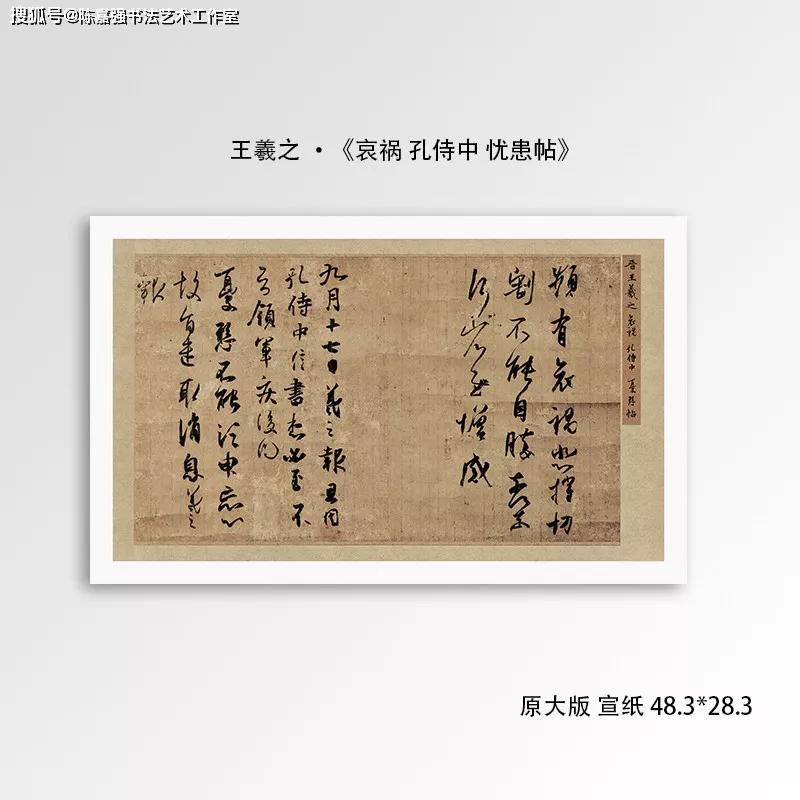 搜狐号@陈嘉强书法艺术工作室
王羲之 •《哀祸 孔侍中 忧患帖》
晋王羲之 哀禍 孔侍中 憂懸帖
頻有哀禍悲摧切
割不能自勝奈何
奈何省慰增感
九月十七日羲之報且因
孔侍中信書想必至不
知領軍疾後問
憂懸不能須臾忘心
故旨遣取消息羲之
報
原大版 宣纸 48.3*28.3